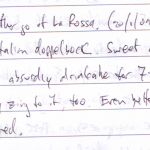 go of La Rossa. (20/1/0
doppelbock. Sweet
absurdly drinkable for 7.
zing to it, too. Even bett